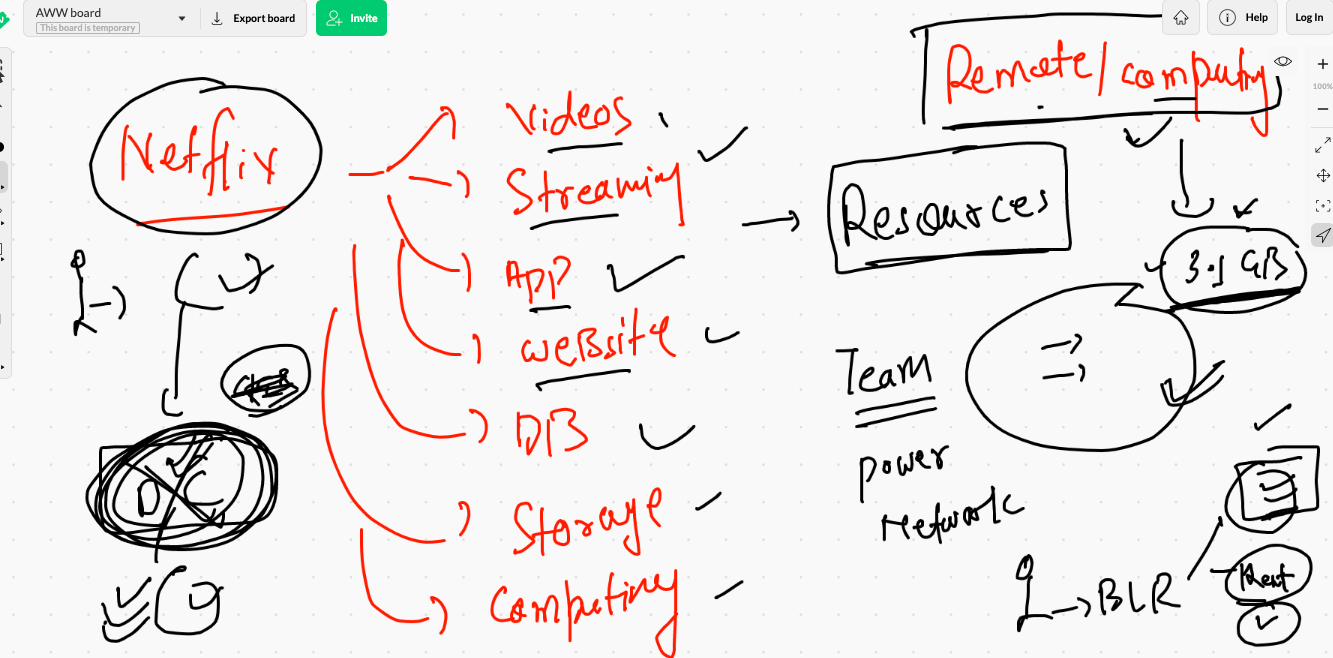 AWW board
This board is temporary
Export board
Invite
Help
Log In
100%
Remote/computing
Netflix
Videos
Streaming
APP
WeBsite
DB
Storage
Computing
Resources
3.1 GB
Team
power
Network
DC
BLR
Rent